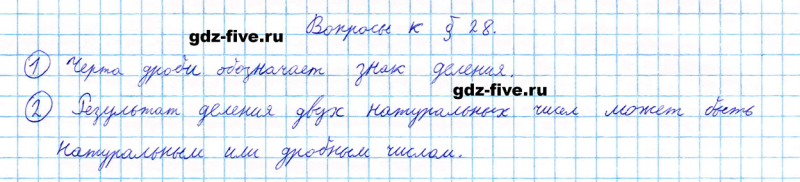 Вопросы к § 28.
gdz-five.ru
1 Черта дроби обозначает знак деления.
gdz-five.ru
2 Результат деления двух натуральных чисел может быть
натуральным или дробным числом.